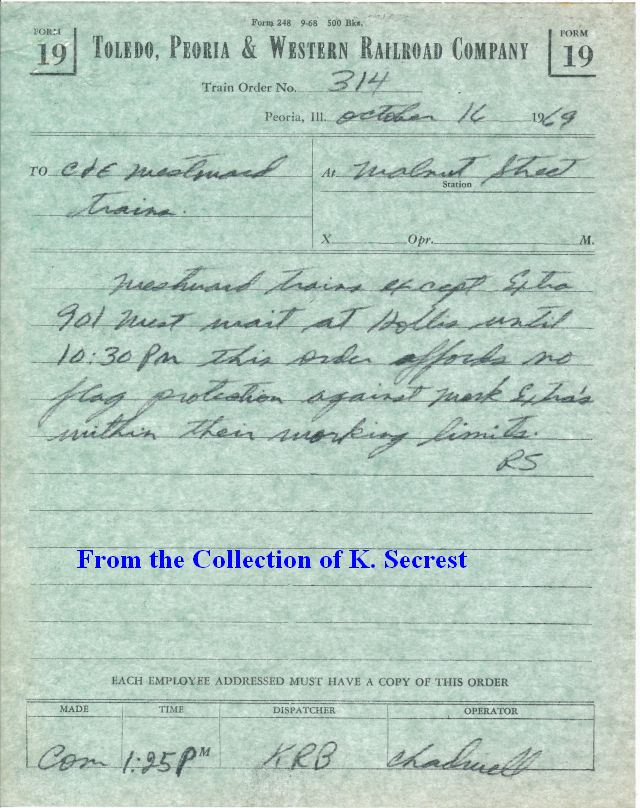 Form 248 9-68 500 Bks.
FORM 19
TOLEDO, PEORIA & WESTERN RAILROAD COMPANY
FORM 19
Train Order No. 314
Peoria, Ill. October 16 1969
TO C&E Westward
trains.
At Walnut Street
Station
X Opr. M.
Westward trains except Extra
901 West wait at Hollis until
10:30 Pm this order affords no
flag protection against Work Extra's
within their working limits.
RS
From the Collection of K. Secrest
EACH EMPLOYEE ADDRESSED MUST HAVE A COPY OF THIS ORDER
MADE TIME DISPATCHER OPERATOR
Com 1:25P M KRB Chadwell